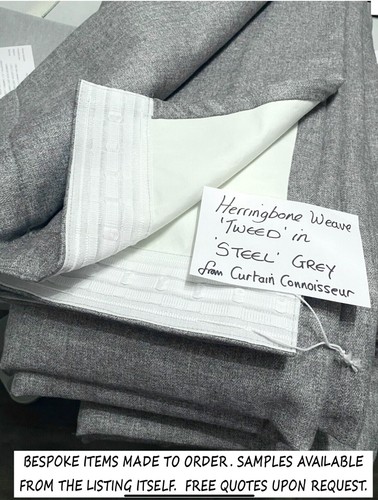 Herringbone Weave
'TWEED' in
'STEEL' GREY
from Curtain Connoisseur
BESPOKE ITEMS MADE TO ORDER. SAMPLES AVAILABLE
FROM THE LISTING ITSELF. FREE QUOTES UPON REQUEST.